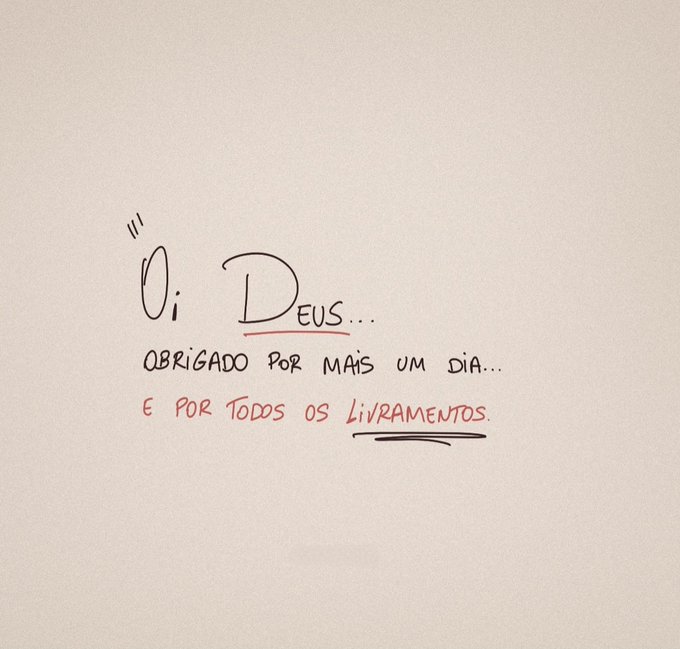 Oi DEUS...
OBRIGADO POR MAIS UM DIA...
E POR TODOS OS LIVRAMENTOS.